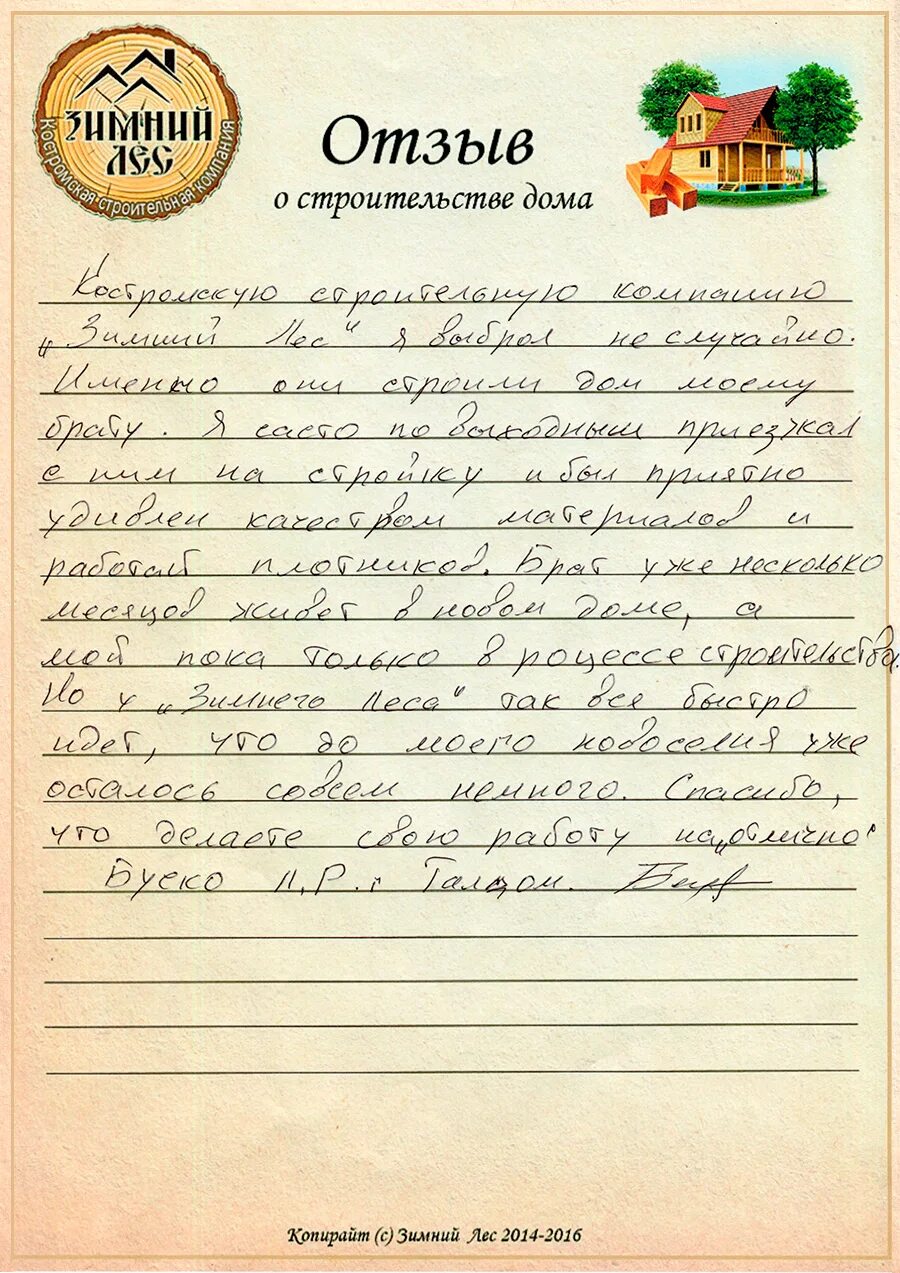 ЗИМНИЙ
ЛЕС
Костромская строительная компания
Отзыв
о строительстве дома
Костромскую строительную компанию
„Зимний Лес“ я выбрал не случайно.
Именно они строили дом моему
брату. Я часто по выходным приезжал
с ним на стройку и был приятно
удивлен качеством материалов и
работой плотников. Брат уже несколько
месяцов живет в новом доме, а
мой пока только в роцессе строительства.
Но у „Зимнего Леса“ так все быстро
идет, что до моего новоселия уже
осталось совсем немного. Спасибо,
что делаете свою работу на „отлично“
Буско Р. г Талдом.
Копирайт (с) Зимний Лес 2014-2016